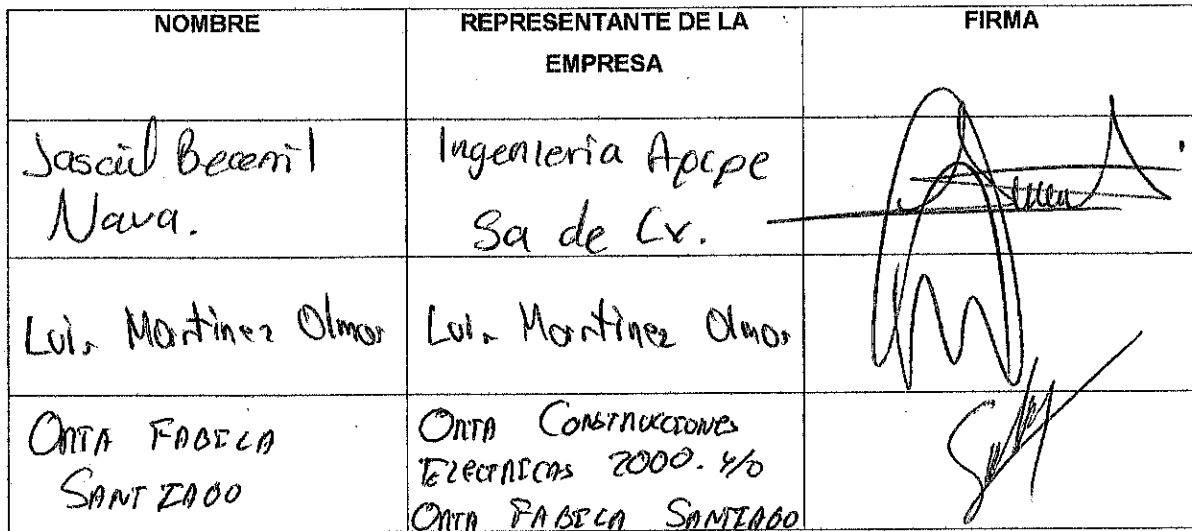 NOMBRE
REPRESENTANTE DE LA
EMPRESA
FIRMA
Becerril
Nava.
Ingenieria Apcpe
Sa de Cv.
Luis Martinez Olmos
Luis Martinez Olmos
ORTA FABILA
SANTIAGO
ORTA CONSTRUCCIONES
ELECTRICAS 2000. Y/O
ORTA FABILA SANTIAGO